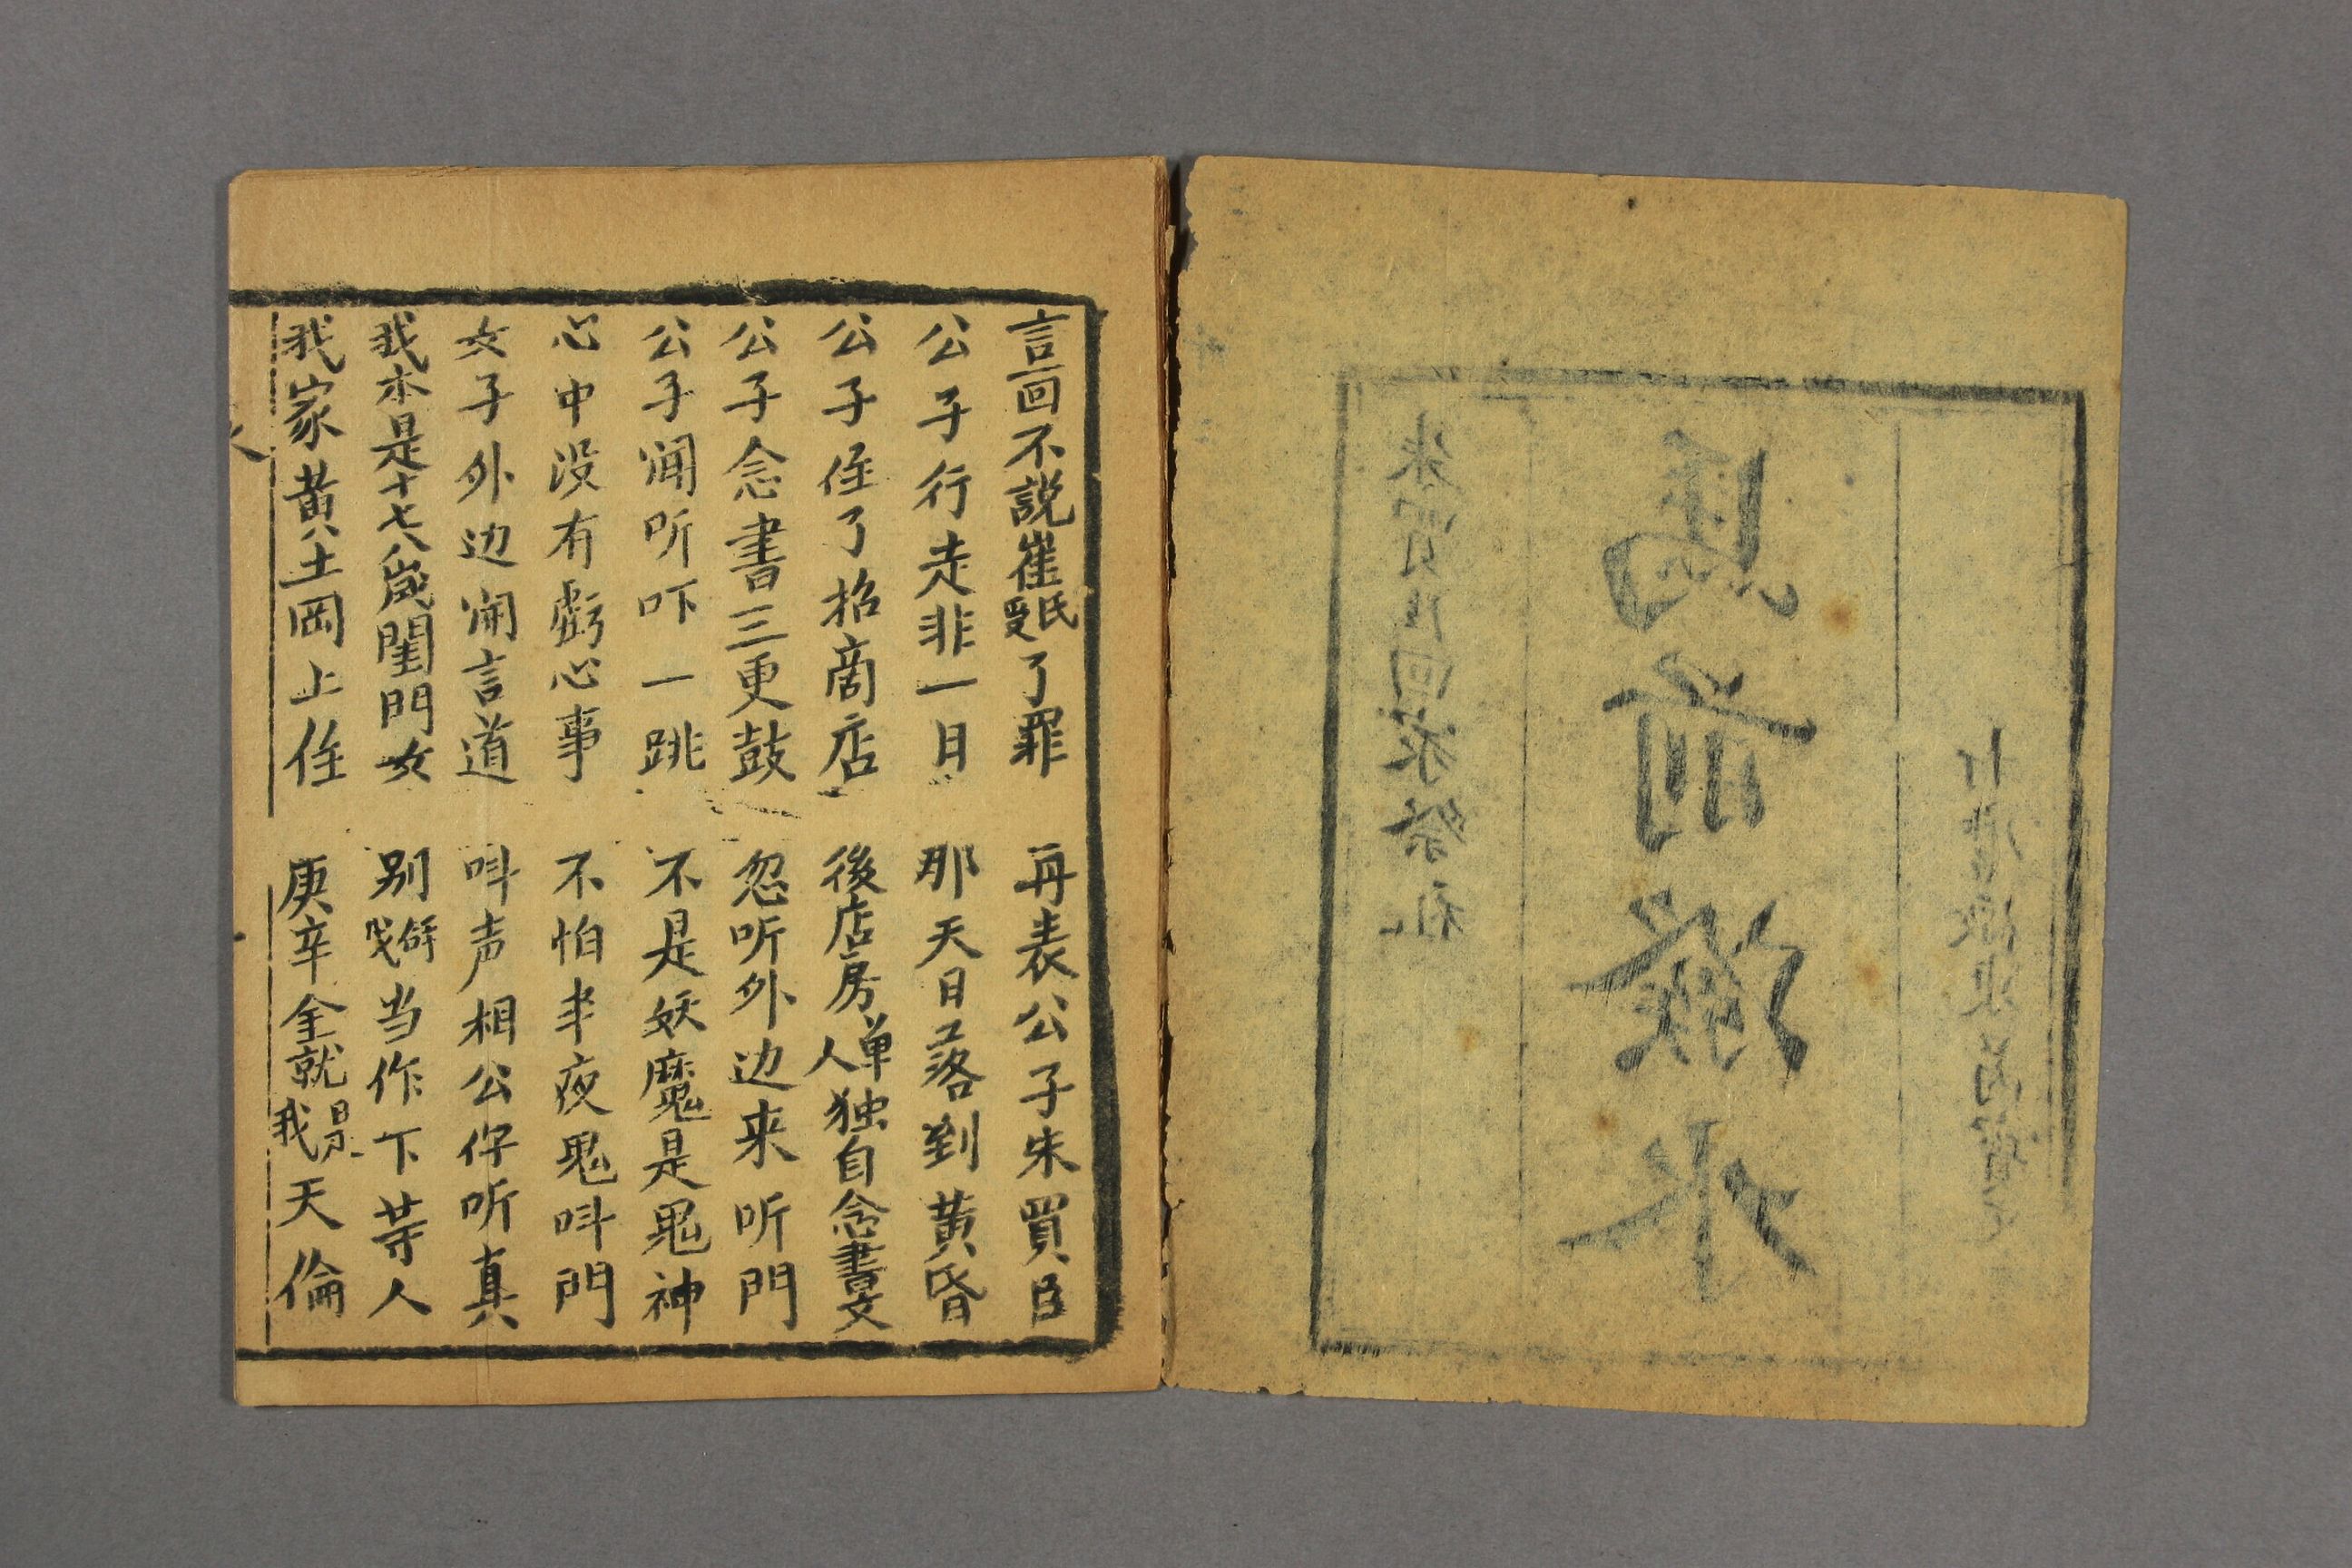 馬前潑水
朱買臣回家祭祖
言回不説崔氏受了罪　再表公子朱買臣
公子行走非一日　那天日落到黄昏
公子住了招商店　後店房单人独自念書文
公子念書三更鼓　忽听外边来听門
公子闻听吓一跳　不是妖魔是鬼神
心中没有虧心事　不怕半夜鬼呌門
女子外边闹言道　呌声相公仔听真
我本是十七八歳閨門女　别僻我当作下等人
我家黄土岡上住　庚辛金就是我天倫